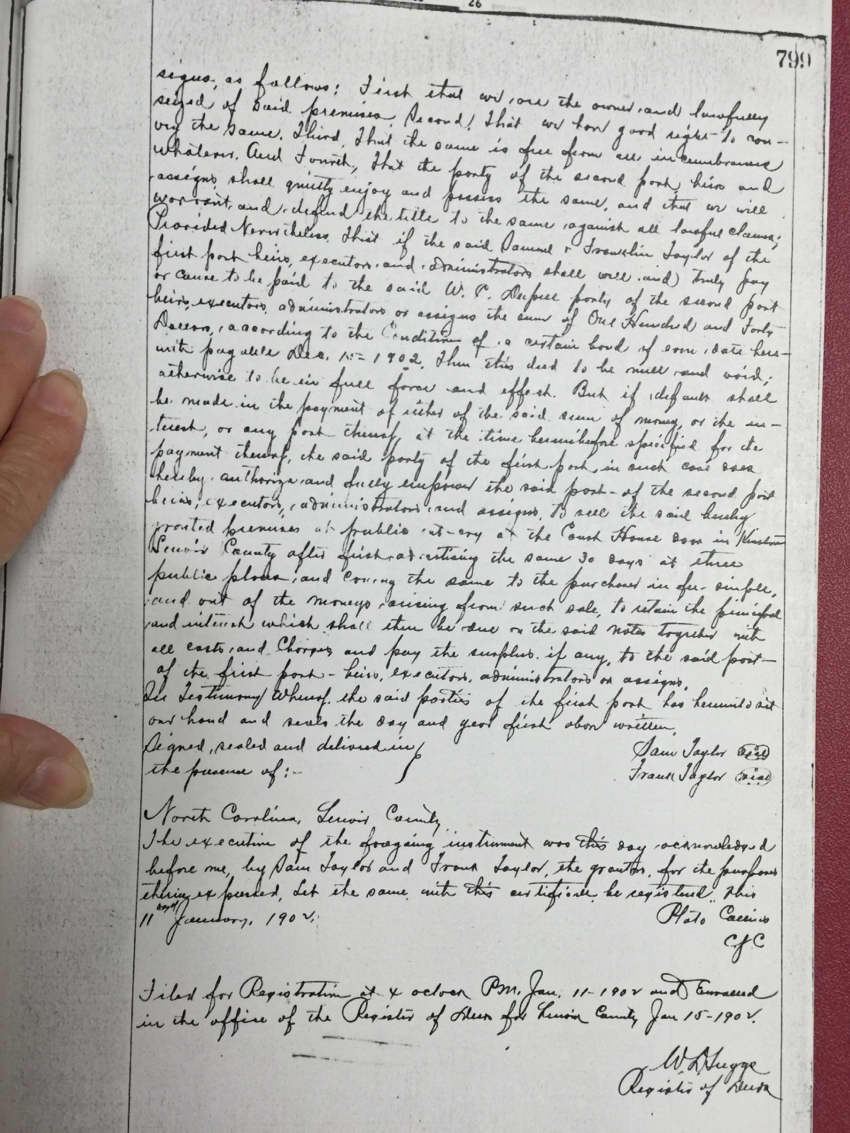 26
799
signs, as follows: First that we are the owner and lawfully
seized of said premises, Second! That we have good right to con-
vey the same. Third, That the same is free from all incumbrances
whatever. And Fourth, That the party of the second part, heirs and
assigns, shall quietly enjoy and possess the same, and that we will
warrant and defend the title to the same against all lawful claims;
Provided Nevertheless That if the said Samuel & Franklin Taylor of the
first part heirs, executors and administrators shall well and truly pay
or cause to be paid to the said W. P. party of the second part
heirs, executors, administrators or assigns the sum of One Hundred and Forty
Dollars, according to the Condition of a certain bond of even date here-
with payable Dec. 1st 1902, Then this deed to be null and void;
otherwise to be in full force and effect. But if default shall
be made in the payment of either of the said sum of money, or the in-
terest, or any part thereof, at the time hereinbefore specified for the
payment thereof, the said party of the first part, in such case does
hereby authorize and fully empower the said part- of the second part
heirs, executors, administrators and assigns, to sell the said hereby
granted premises at public out-cry at the Court House door in Kinston
Lenoir County after first advertising the same 30 days at three
public places, and convey the same to the purchaser in fee simple,
and out of the moneys arising from such sale, to retain the principal
and interest which shall then be due on the said notes together with
all costs and Charges and pay the surplus if any, to the said part-
of the first part - heirs, executors, administrators or assigns.
In Testimony Whereof, the said parties of the first part has hereunto set
our hand and seals the day and year first above written.
Signed, sealed and delivered in } Sam Taylor seal
the presence of:- Frank Taylor seal
North Carolina, Lenoir County,
The execution of the foregoing instrument was this day acknowledged
before me, by Sam Taylor and Frank Taylor, the grantors, for the purposes
therein expressed, Let the same, with this certificate, be registered. This
11 January, 1902. Plato Collins
CSC
Filed for Registration at 4 oclock P.M. Jan. 11-1902 and Enrolled
in the office of the Register of Deeds for Lenoir County Jan 15-1902.
W. D. Suggs
Register of Deeds